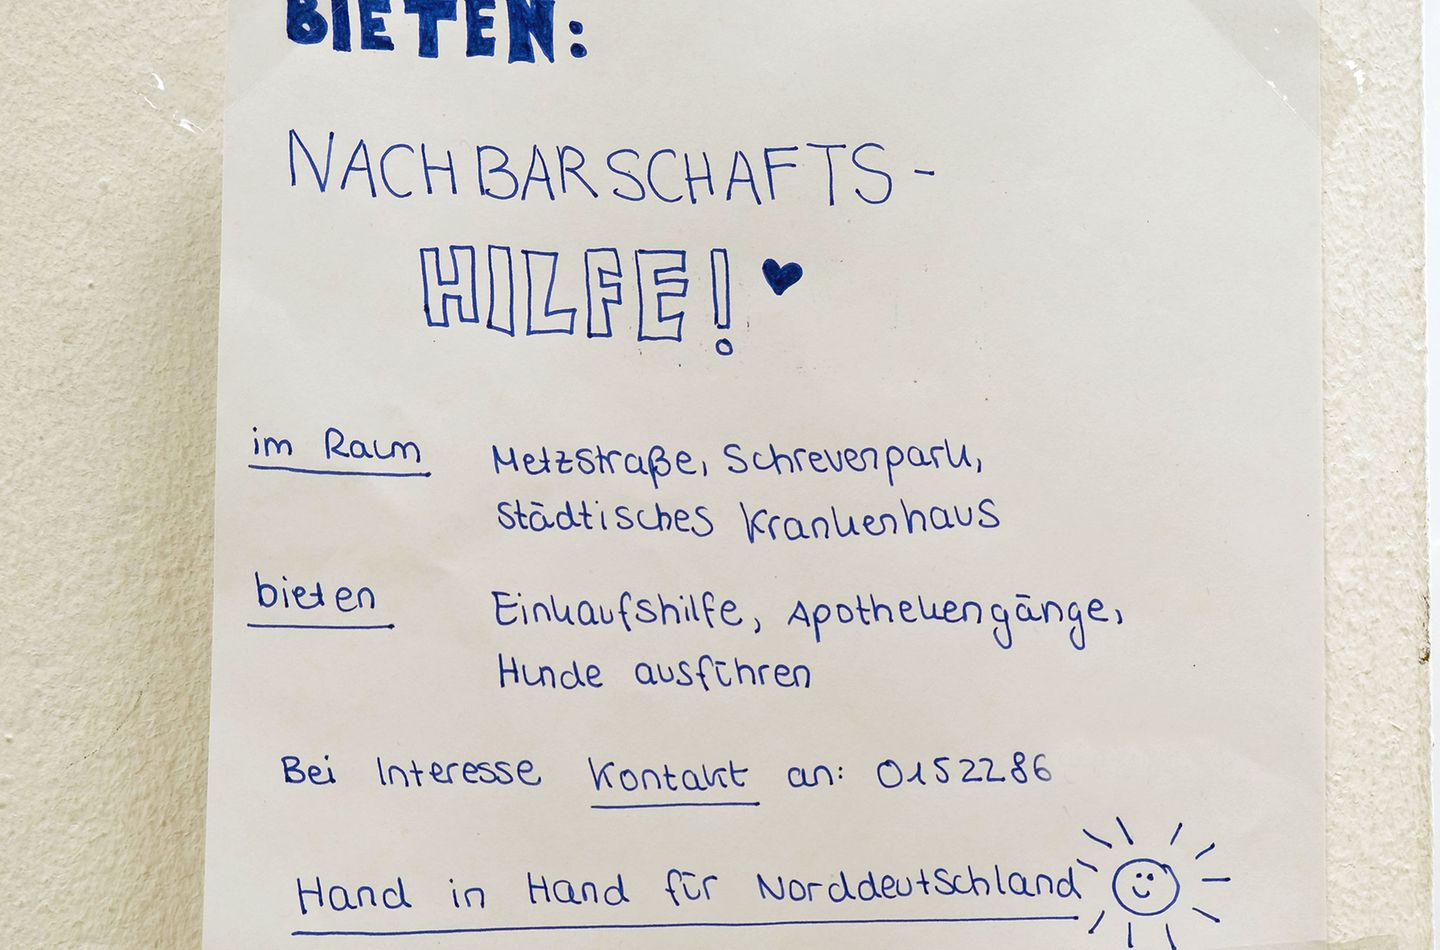 BIETEN:
NACHBARSCHAFTS-
HILFE! ♥
im Raum Metzstraße, Schrevenpark,
Städtisches Krankenhaus
bieten Einkaufshilfe, Apothekengänge,
Hunde ausführen
Bei Interesse Kontakt an: 0152286
Hand in Hand für Norddeutschland